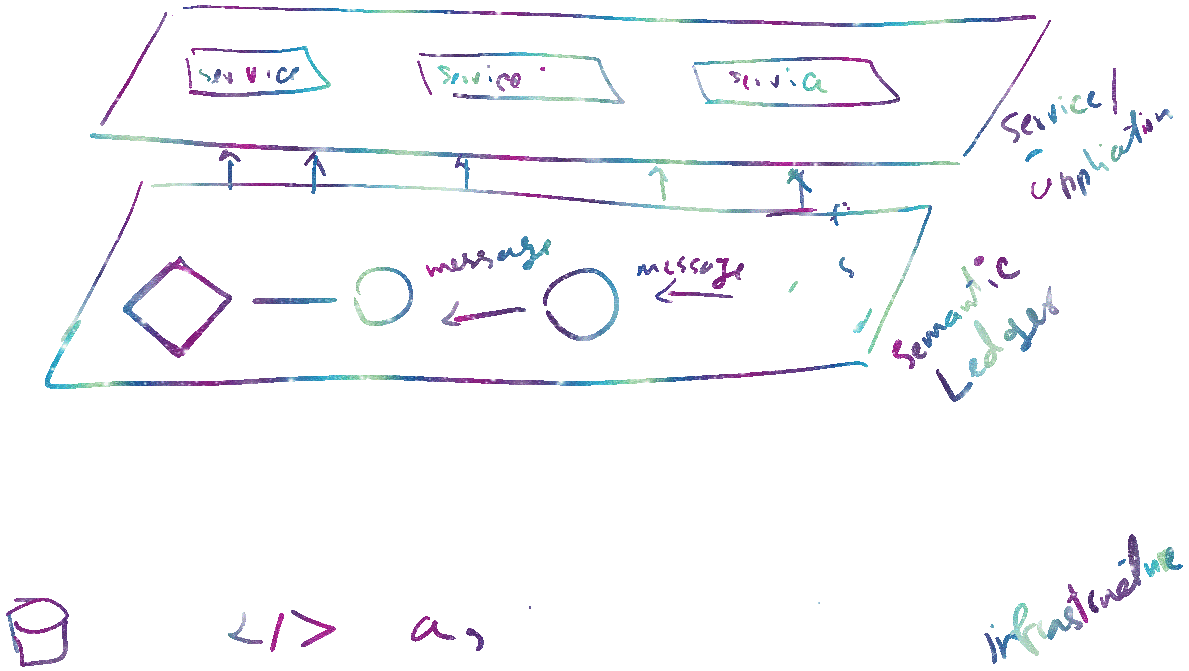 service
service
service
service/
application
message
message
semantic
Ledger
infrastructure
</> a,